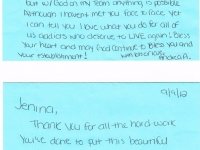 but w/ God on my team anything is possible
Although I haven't met you face to face yet
I can tell you I love what you do for all of
us addicts who deserve to LIVE again! Bless
Your heart and may God continue to Bless you and
Your establishment!
Andrea A.
9/9/12
Jenina,
Thank you for all the hard work
You've done to put this beautiful